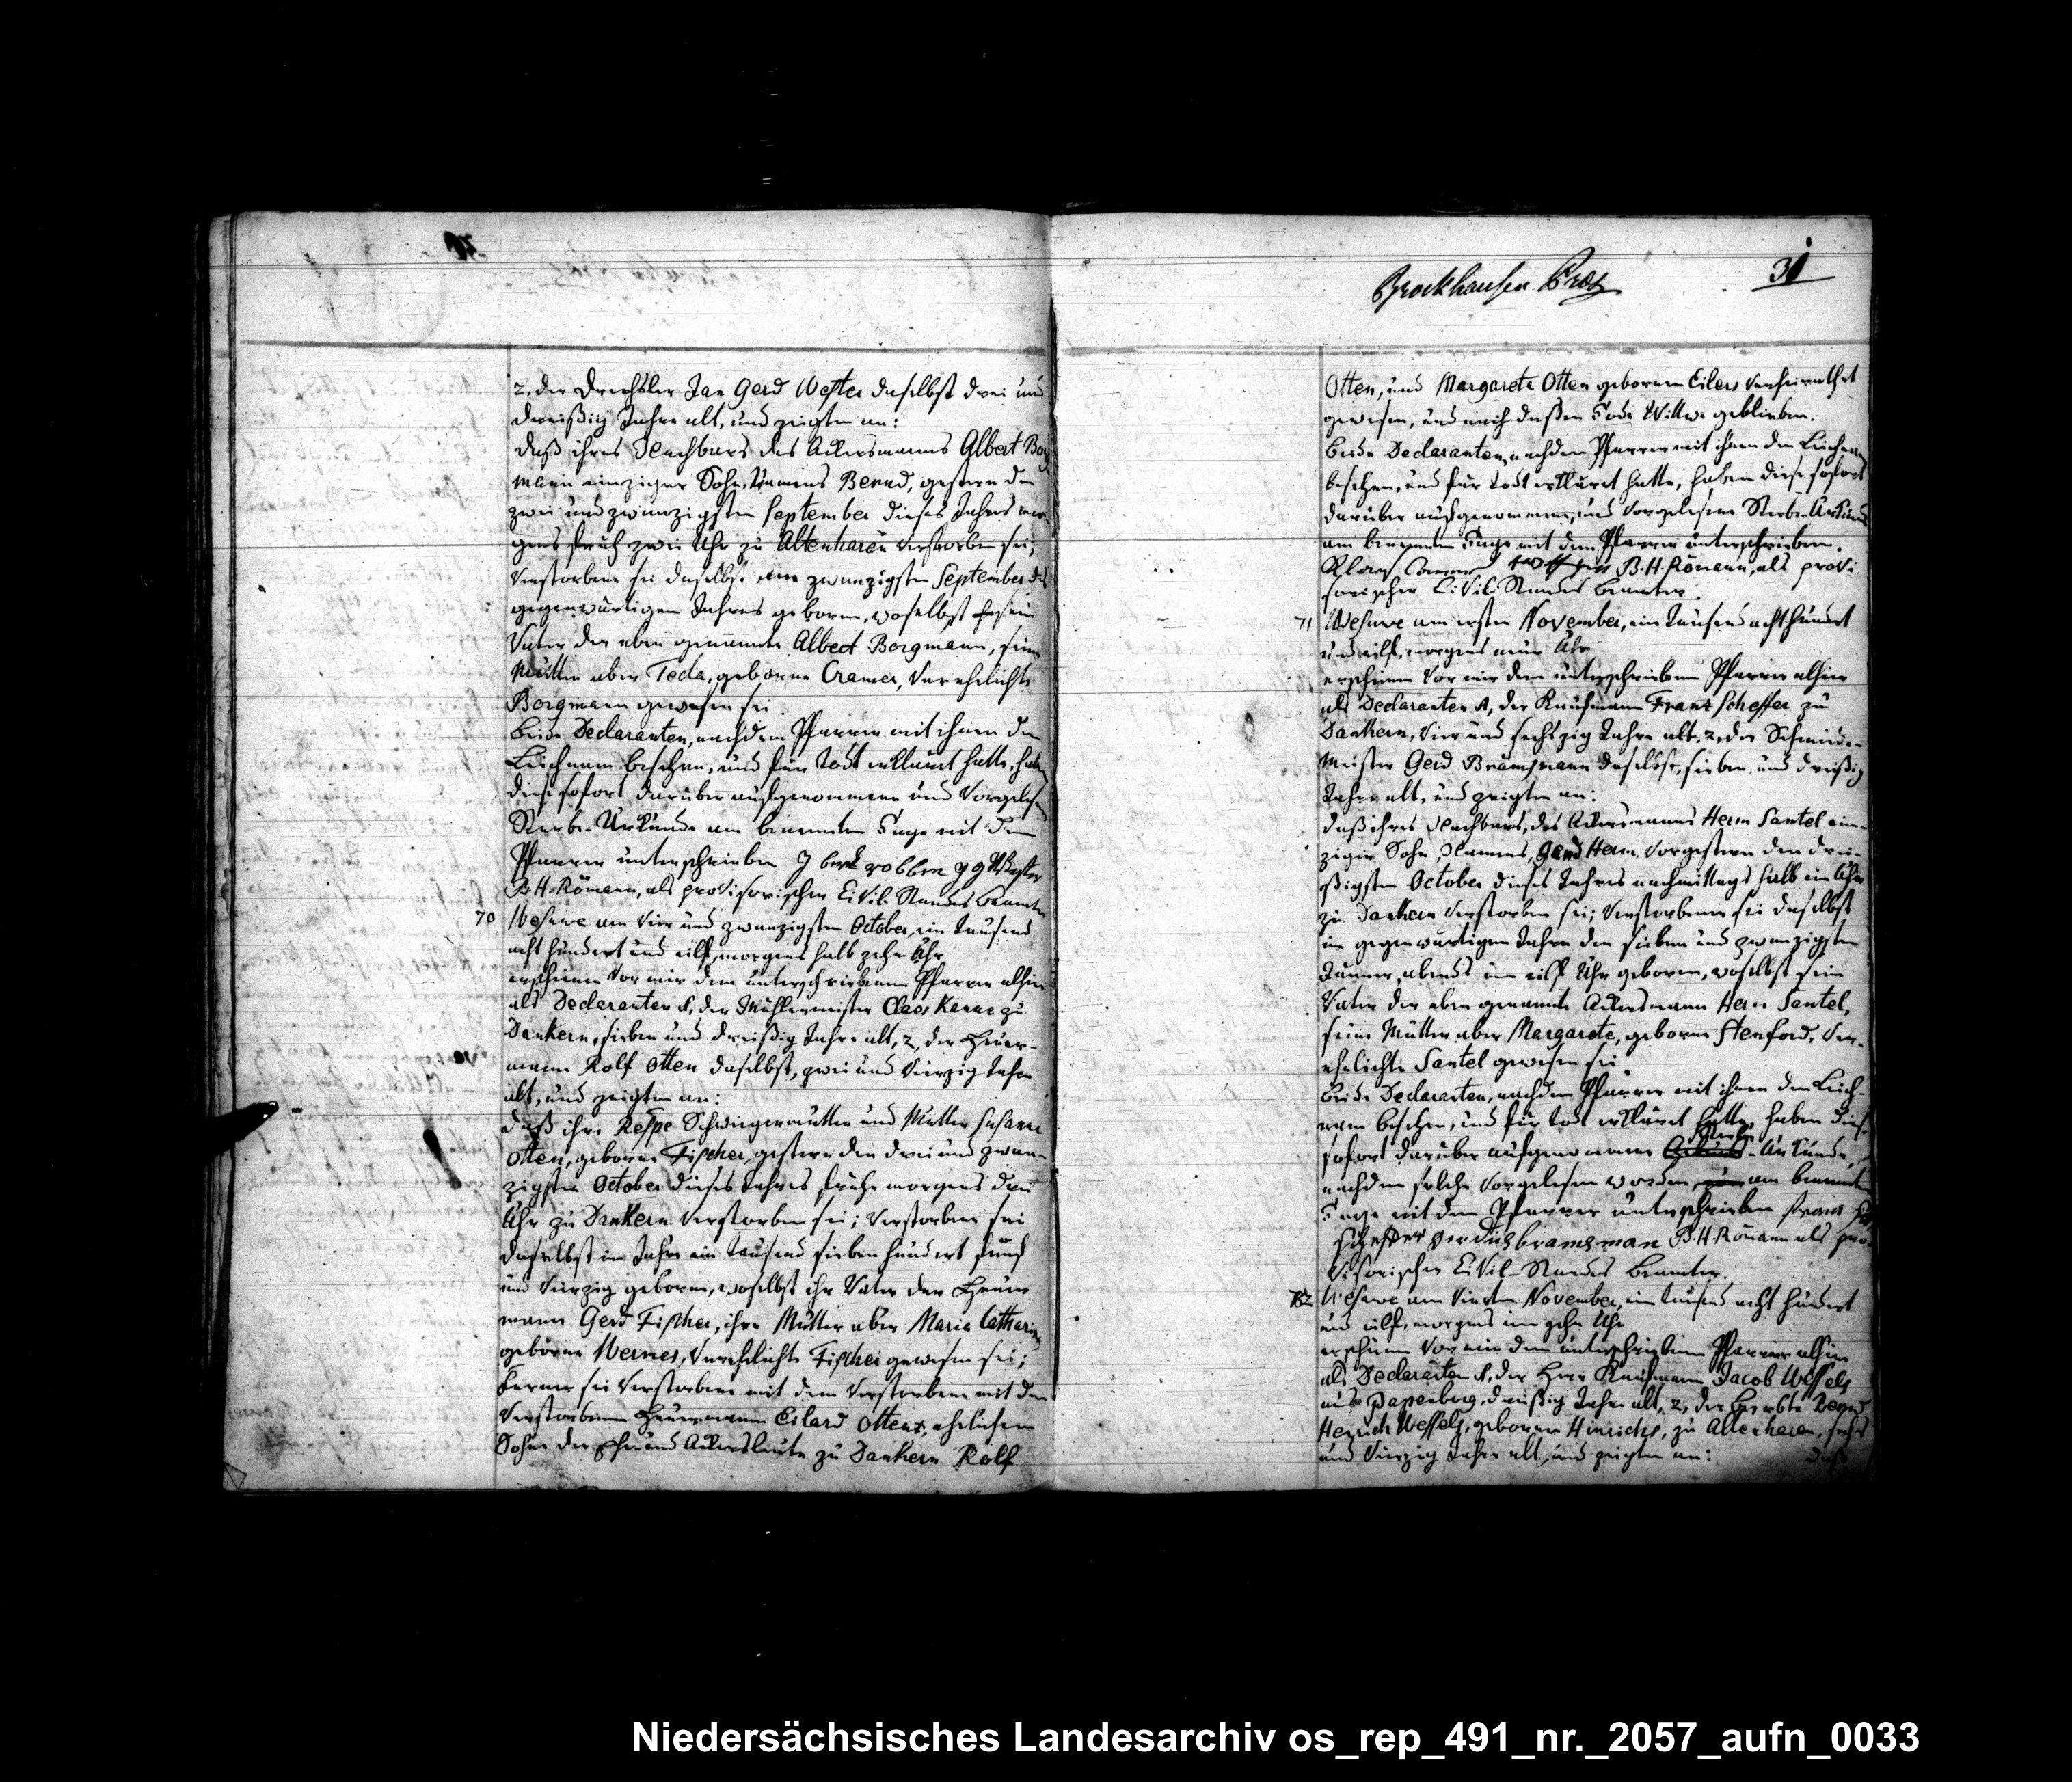 2, der Drechsler Jan Gerd Wester daselbst drei und
dreißig Jahre alt, und zeigten an:
daß ihres Nachbars des Ackersmanns Albert Borg
mann einziger Sohn, Namens Bernd, gestern den
zwei und zwanzigsten September dieses Jahrs mor-
gens früh zwei Uhr zu Altenharen verstorben sei;
Verstorbene sei daselbst am zwanzigsten September des
gegenwärtigen Jahres geboren, woselbst sein
Vater der eben genannte Albert Borgmann, seine
Mutter aber Teda, geborne Cramer, verehelichte
Borgmann gewesen sei
beide Declaranten, nachdem Pfarrer mit ihnen den
Leichnam besehen, und für todt erkläret hatte, haben
diese sofort darüber aufgenommene und vorgelesene
Sterbe-Urkunde am benennten Tage mit dem
Pfarrer unterschrieben J bernd robben J g Wester
B. H. Römann, als provisorischer Civil-Standes Beamter
70 Wesuwe am vier und zwanzigsten October, ein tausend
acht hundert und eilf, morgens halb zehn Uhr
erschienen vor mir dem unterschriebenen Pfarrer alhier
als Declaranten 1, der Mühlenmeister Claes Kanne zu
Dankern, sieben und dreißig Jahre alt, 2, der Heuer-
mann Rolf Otten daselbst, zwei und vierzig Jahre
alt, und zeigten an:
daß ihre Respe Schwiegermutter und Mutter Susanna
Otten, geborne Fischer, gestern den drei und zwan-
zigsten October dieses Jahres frühe morgens drei
Uhr zu Dankern verstorben sei; Verstorbene sei
daselbst im Jahre ein tausend sieben hundert fünf
und vierzig geboren, woselbst ihr Vater der Heuer
mann Gerd Fischer, ihre Mutter aber Maria Catharina
geborne Wernes, verehelichte Fischer gewesen sei;
Ferner sei Verstorbene mit dem Verstorbene mit dem
Verstorbenen Heuermann Eilard Otten, ehelichen
Sohne der Eheund Ackersleute zu Dankern Rolf
Brockhausen Præs
31
Otten, und Margareta Otten gebornen Eilers verheirathet
gewesen, und nach dessen Tode Wittwe geblieben.
beide Declaranten, nachdem Pfarrer mit ihnen den Leichnam
besehen, und für todt erkläret hatte, haben diese sofort
darüber aufgenommene, und vorgelesene Sterbe-Urkunde
am benennten Tage mit dem Pfarrer unterschrieben.
B. H. Römann, als provi
sorischer Civil-Standes Beamter.
71 Wesuwe am ersten November, ein tausend acht hundert
und eilf, morgens neun Uhr
erschienen vor mir dem unterschriebenen Pfarrer alhier
als Declaranten 1, der Kaufmann Frans Scheffer zu
Dankern, vier und sechszig Jahre alt, 2, der Schmiede-
Meister Gerd Brämsmann daselbst, sieben und dreißig
Jahre alt, und zeigten an:
daß ihres Nachbars, des Ackersmanns Herm Santel ein-
ziger Sohn, Namens, Gerd Herm. vorgestern den drei-
ßigsten October dieses Jahres nachmittags halb ein Uhr
zu Dankern verstorben sei; Verstorbener sei daselbst
im gegenwärtigen Jahre den sieben und zwanzigsten
Januar, abends um eilf Uhr geboren, woselbst sein
Vater der eben genannte Ackersmann Herm Santel,
seine Mutter aber Margarete, geborne Stenford, ver-
ehelichte Santel gewesen sei
beide Declaranten, nachdem Pfarrer mit ihnen den Leich-
nam besehen, und für todt erkläret hatte, haben diese
sofort darüber aufgenommene Sterbe-Urkunde,
nachdem solche vorgelesen worden, am benennten
Tage mit dem Pfarrer unterschrieben frans
scheffer bramsman B. H. Römann als pro-
visorischer Civil-Standes Beamter.
72 Wesuwe am vierten November, ein tausend acht hundert
und eilf, morgens um zehn Uhr
erschienen vor mir dem unterschriebenen Pfarrer alhier
als Declaranten 1, der Herr Kaufmann Jacob Wessels
aus Papenborg, dreißig Jahre alt, 2, der Bernd
Henrich Wessels, geborner Hinrichs, zu Altenharen, sechs
und vierzig Jahre alt, und zeigten an:
daß
Niedersächsisches Landesarchiv os_rep_491_nr._2057_aufn_0033